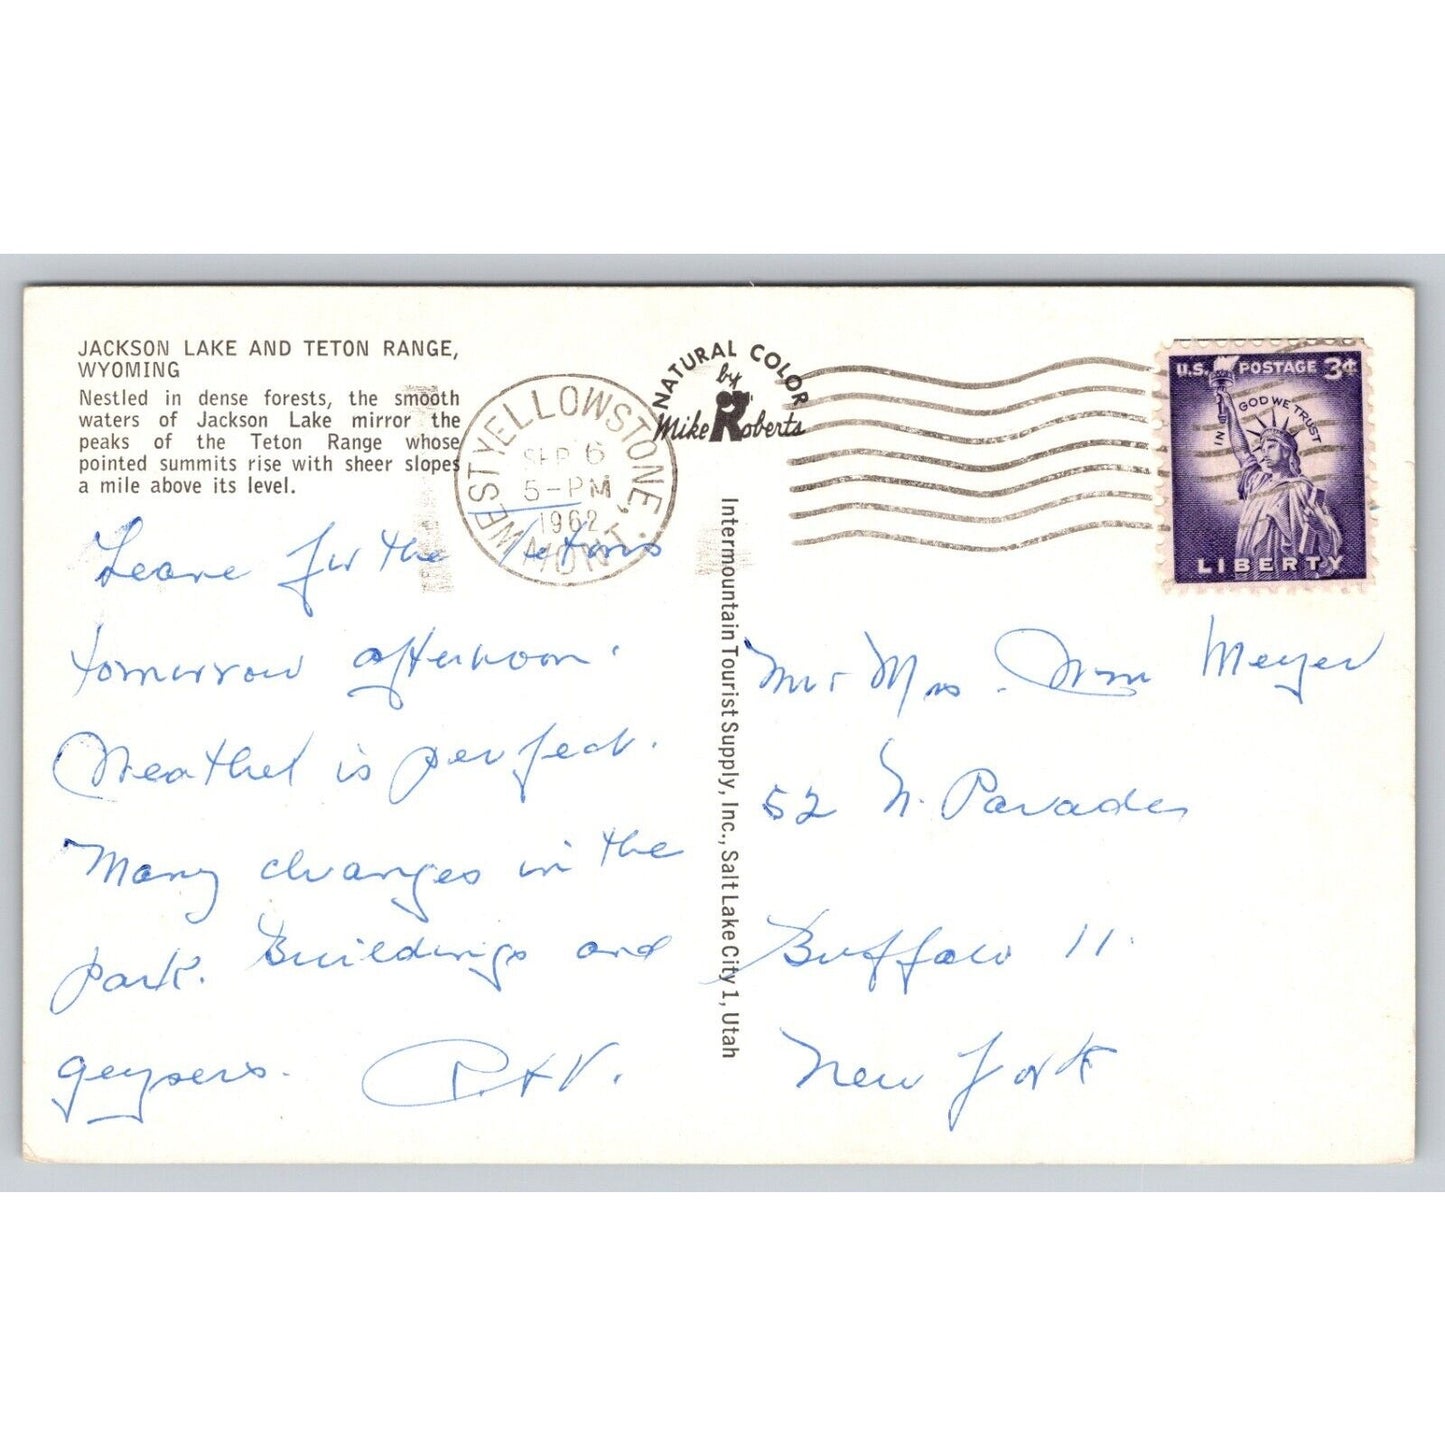 JACKSON LAKE AND TETON RANGE,
WYOMING
Nestled in dense forests, the smooth
waters of Jackson Lake mirror the
peaks of the Teton Range whose
pointed summits rise with sheer slopes
a mile above its level.
Leave for the Tetons
tomorrow afternoon.
Weather is perfect.
Many changes in the
park. Buildings and
geysers. P. + V.
WEST YELLOWSTONE, MONT.
SEP 6
5-PM
1962
NATURAL COLOR
by
Mike Roberts
Intermountain Tourist Supply, Inc., Salt Lake City 1, Utah
U.S. POSTAGE 3¢
IN GOD WE TRUST
LIBERTY
Mr + Mrs. Wm Meyer
52 N. Parade
Buffalo 11
New York